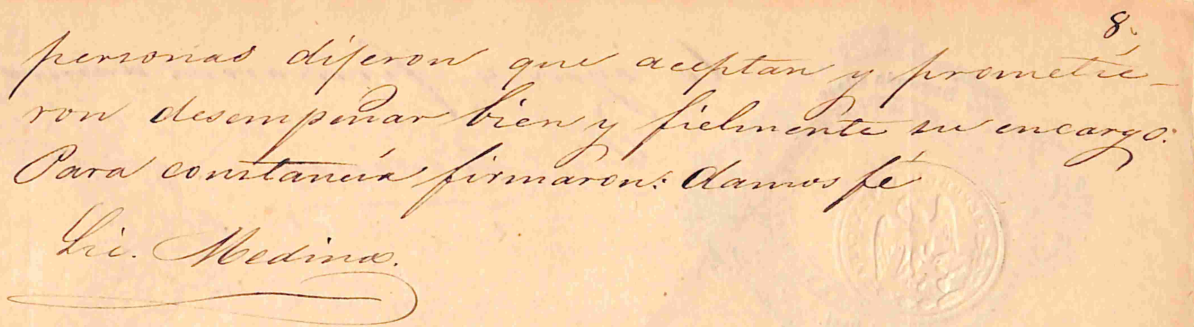 8.
personas dijeron que aceptan y prometie-
ron desempeñar bien y fielmente su encargo.
Para constancia firmaron: damos fé
Lic. Medina.